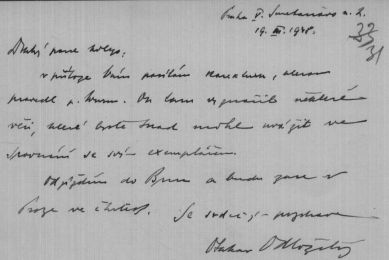 Praha V. Smetanovo n. 2.
19. III. 1948.
32
31
Drahý pane kolego,
v příloze Vám posílám
provedl p. On tam vyznačil některé
věci, které byste snad mohl uvážit ve
srovnání se svým exemplářem.
Odjíždím do Brna a budu zase v
Praze ve čtvrtek. Se srdečným pozdravem
Otakar Odložilík